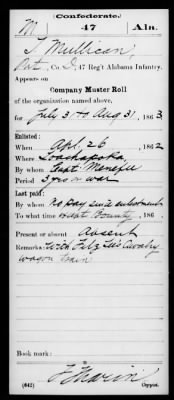 (Confederate.)
M 47 Ala.
T Mullican
Pvt, Co. I, 47 Reg't Alabama Infantry.
Appears on
Company Muster Roll
of the organization named above,
for July 31 to Aug 31, 1863
Enlisted:
When Apr. 26, 1862
Where Loachapoka
By whom Capt. Menefee
Period 3 yrs or war
Last paid:
By whom No pay since enlistment
To what time Bounty, 186 .
Present or absent Absent
Remarks: With Fitz Lee's Cavalry
wagon train
Book mark:
(642) Copyist.